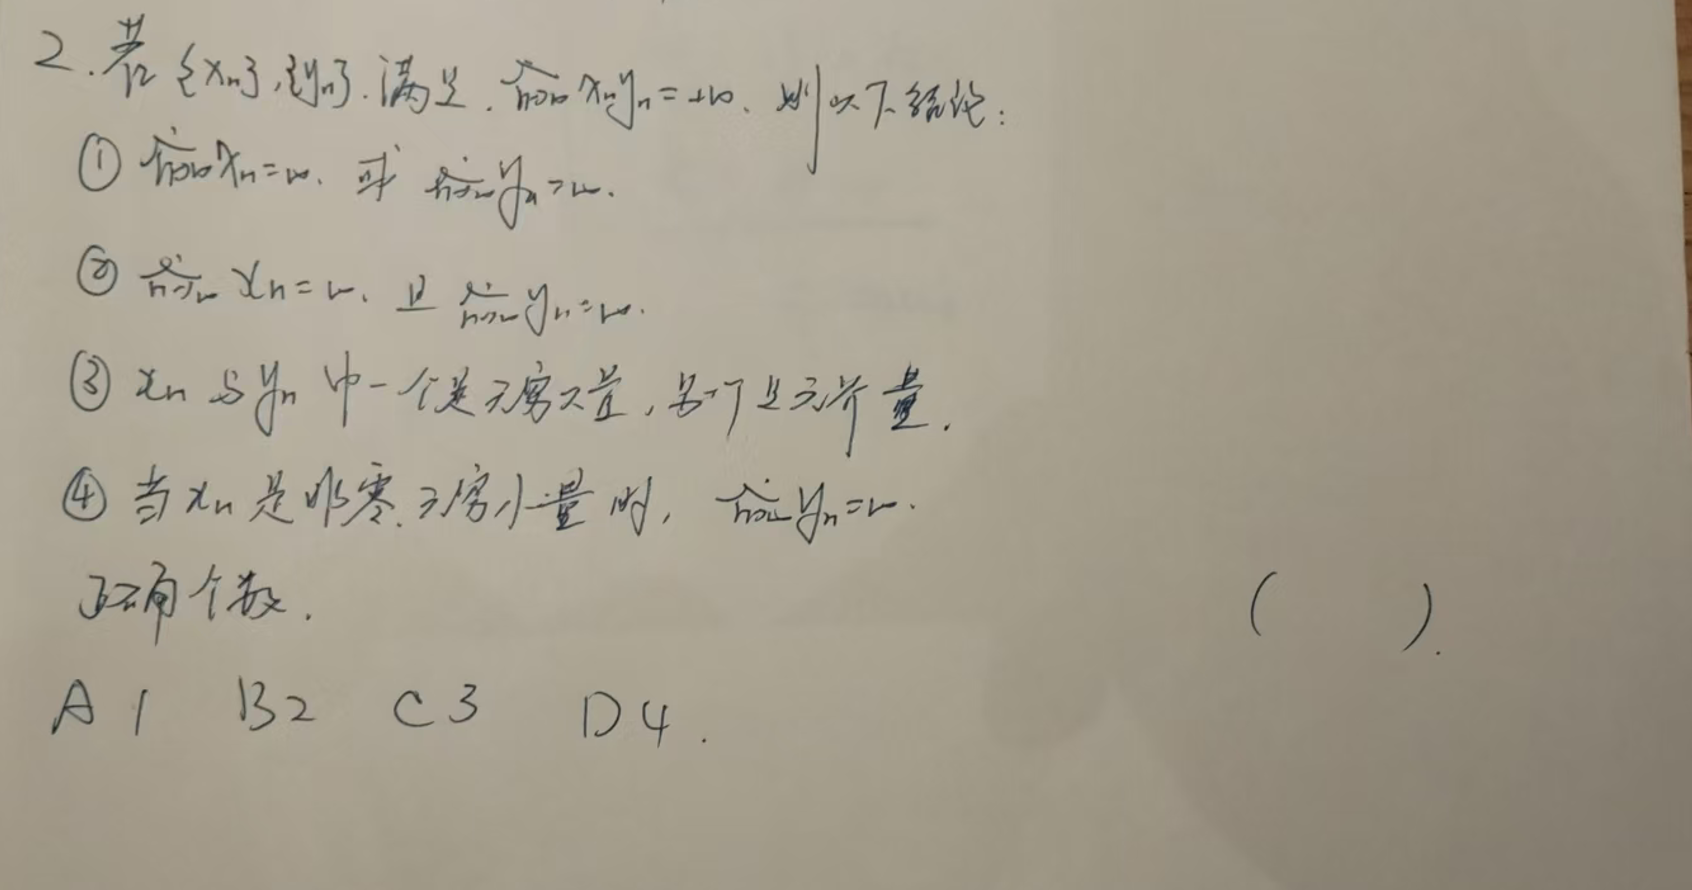 2.若{xn},{yn}.满足.lim n→∞ xnyn=+∞.则以下结论:
① lim n→∞ xn=∞.或 lim n→∞ yn=∞.
② lim n→∞ xn=∞.且 lim n→∞ yn=∞.
③ xn与yn中一个是无穷大量,另一个是无界量.
④ 当xn是非零无穷小量时, lim n→∞ yn=∞.
正确个数. ( ).
A 1 B2 C 3 D 4.